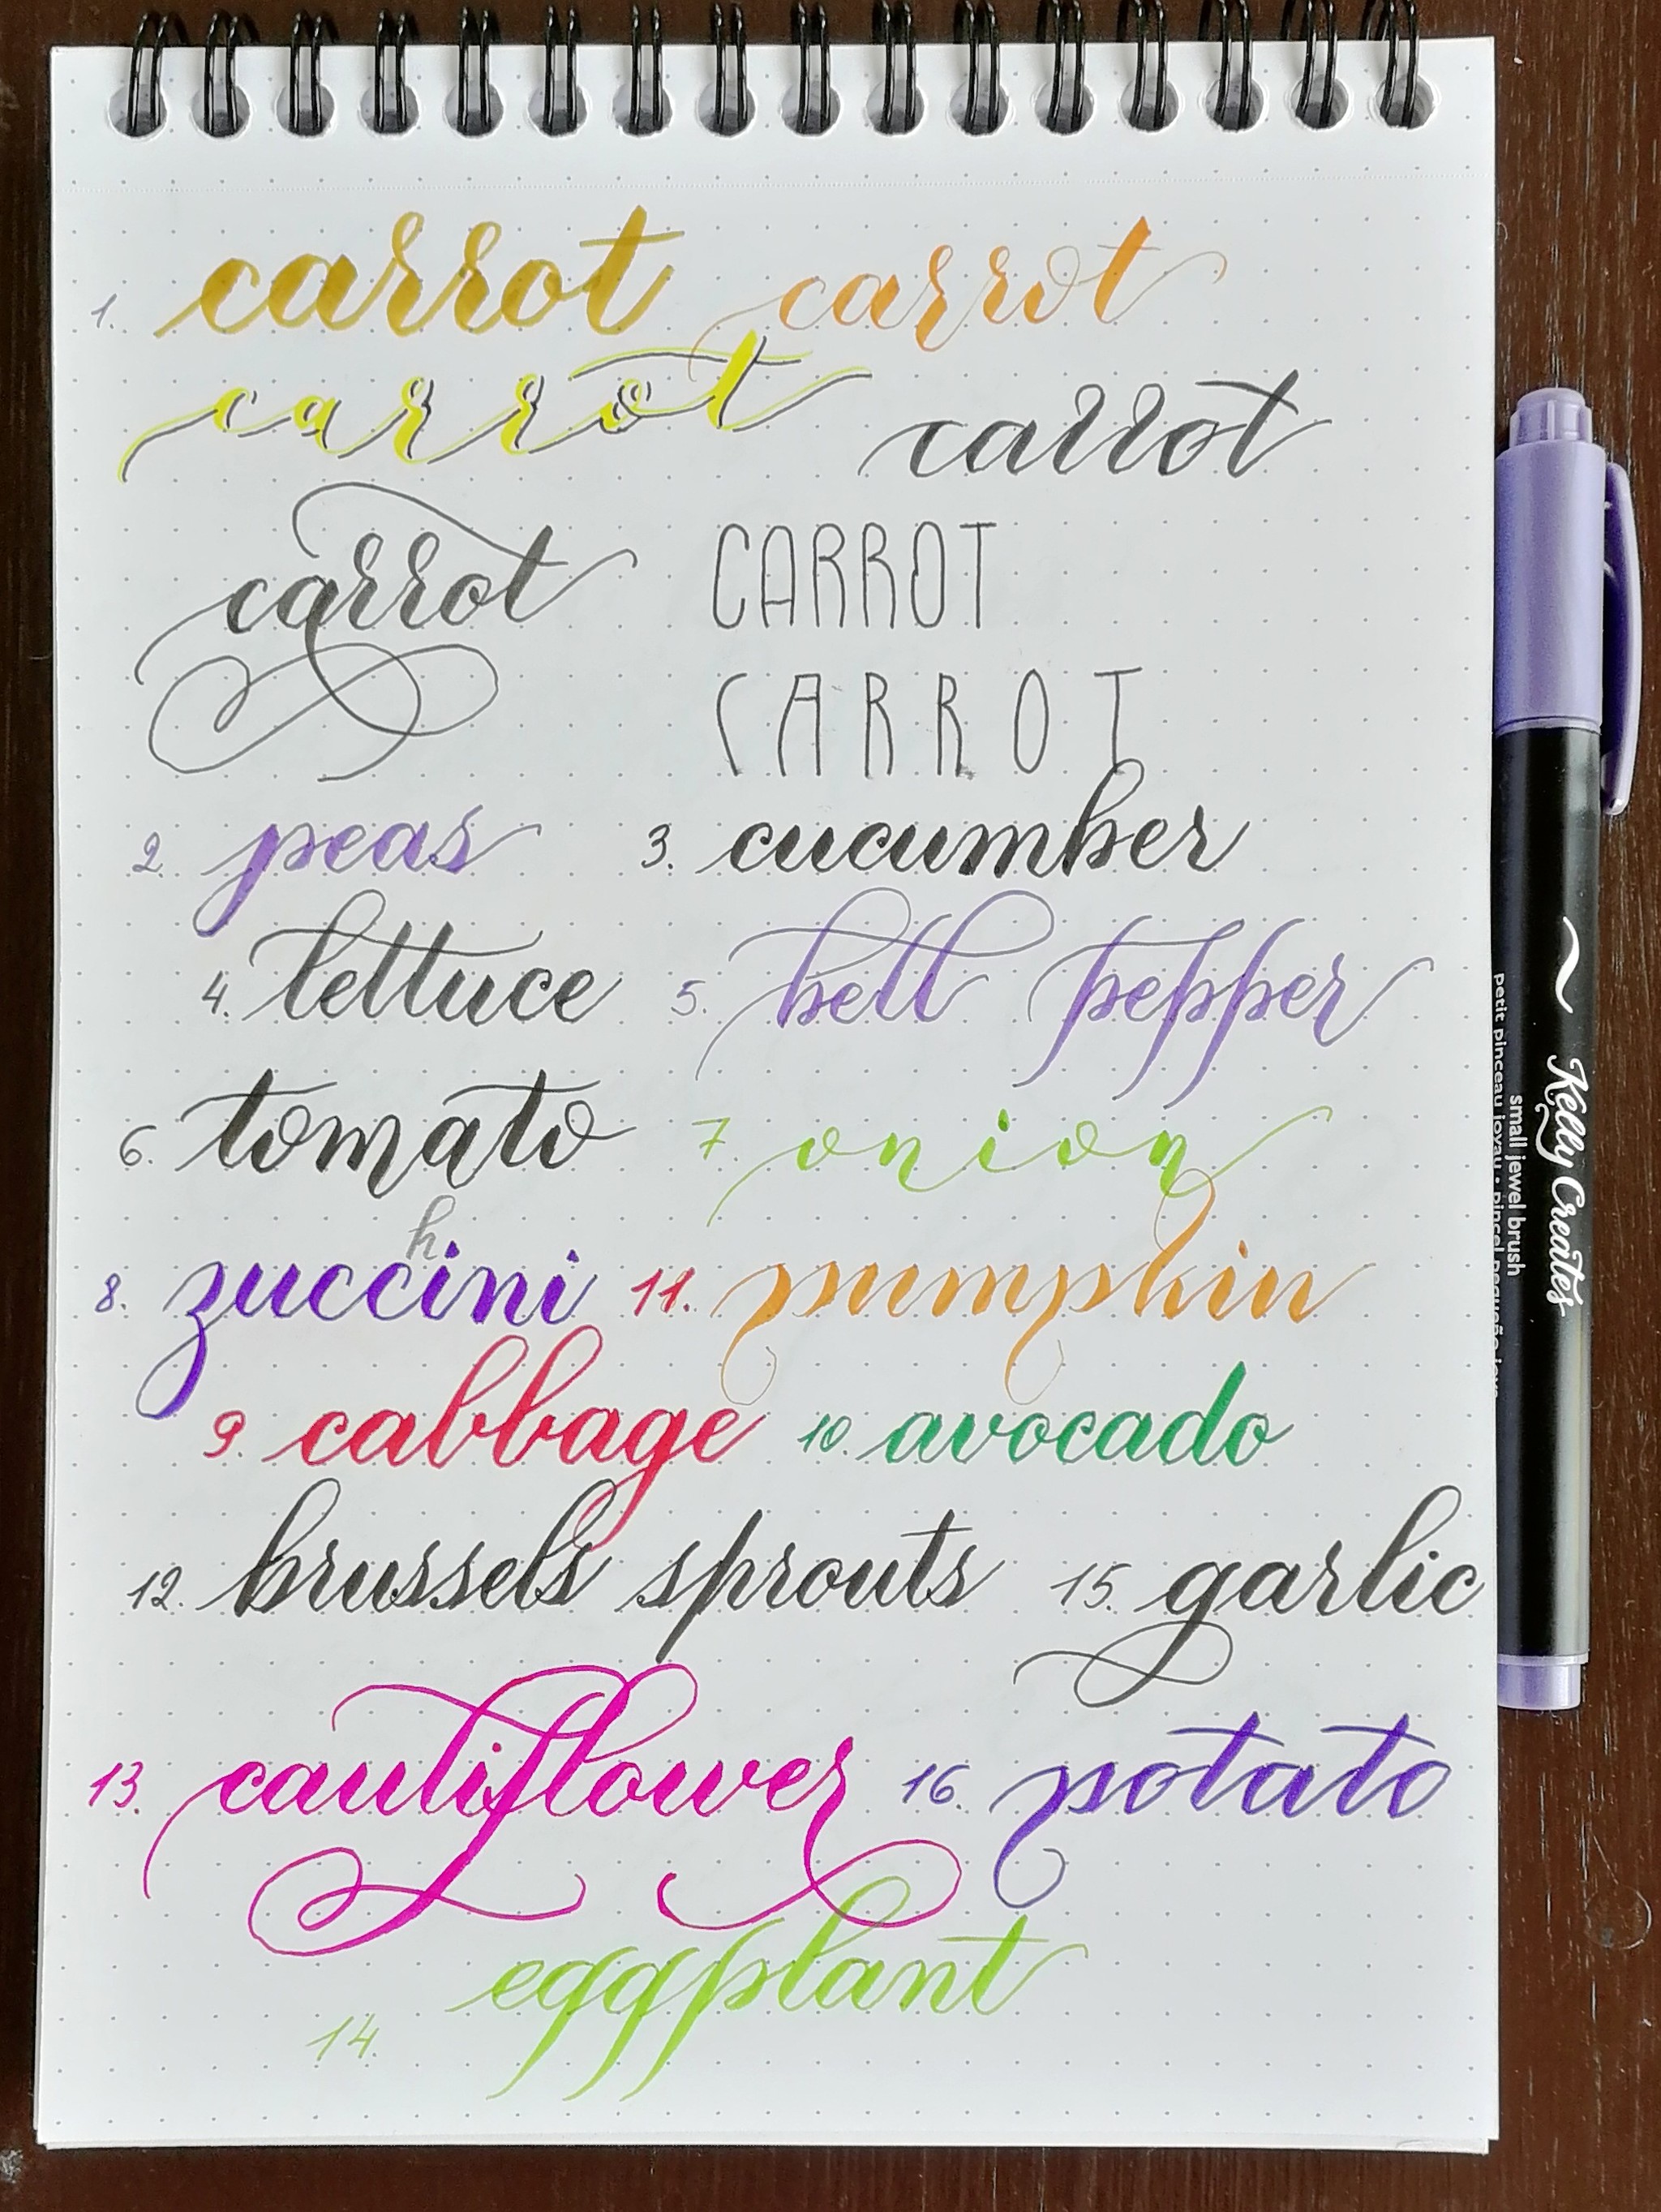 1. carrot carrot
carrot carrot
carrot CARROT
CARROT
2. peas 3. cucumber
4. lettuce 5. bell pepper
6. tomato 7. onion
h
8. zuccini 11. pumpkin
9. cabbage 10. avocado
12. brussels sprouts 15. garlic
13. cauliflower 16. potato
14. eggplant
Kelly Creates
small jewel brush
petit pinceau joyau •